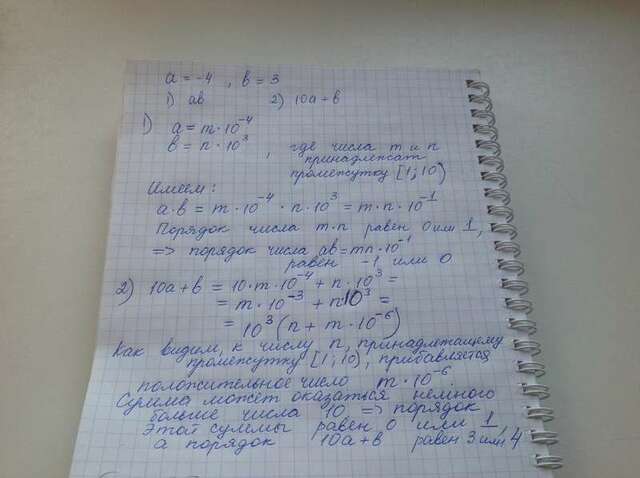 a = -4 , b = 3
1) ab 2) 10a+b
1) a = m·10⁻⁴
b = n·10³ , где числа m и n
принадлежат
промежутку [1; 10)
Имеем:
a·b = m·10⁻⁴ · n·10³ = m·n·10⁻¹
Порядок числа m·n равен 0 или 1,
=> порядок числа ab = mn·10⁻¹
равен -1 или 0
2) 10a+b = 10·m·10⁻⁴ + n·10³ =
= m·10⁻³ + n10³ =
= 10³(n + m·10⁻⁶)
Как видим, к числу n, принадлежащему
промежутку [1; 10), прибавляется
положительное число m·10⁻⁶.
Сумма может оказаться немного
больше числа 10 => порядок
этой суммы равен 0 или 1,
а порядок 10a+b равен 3 или 4